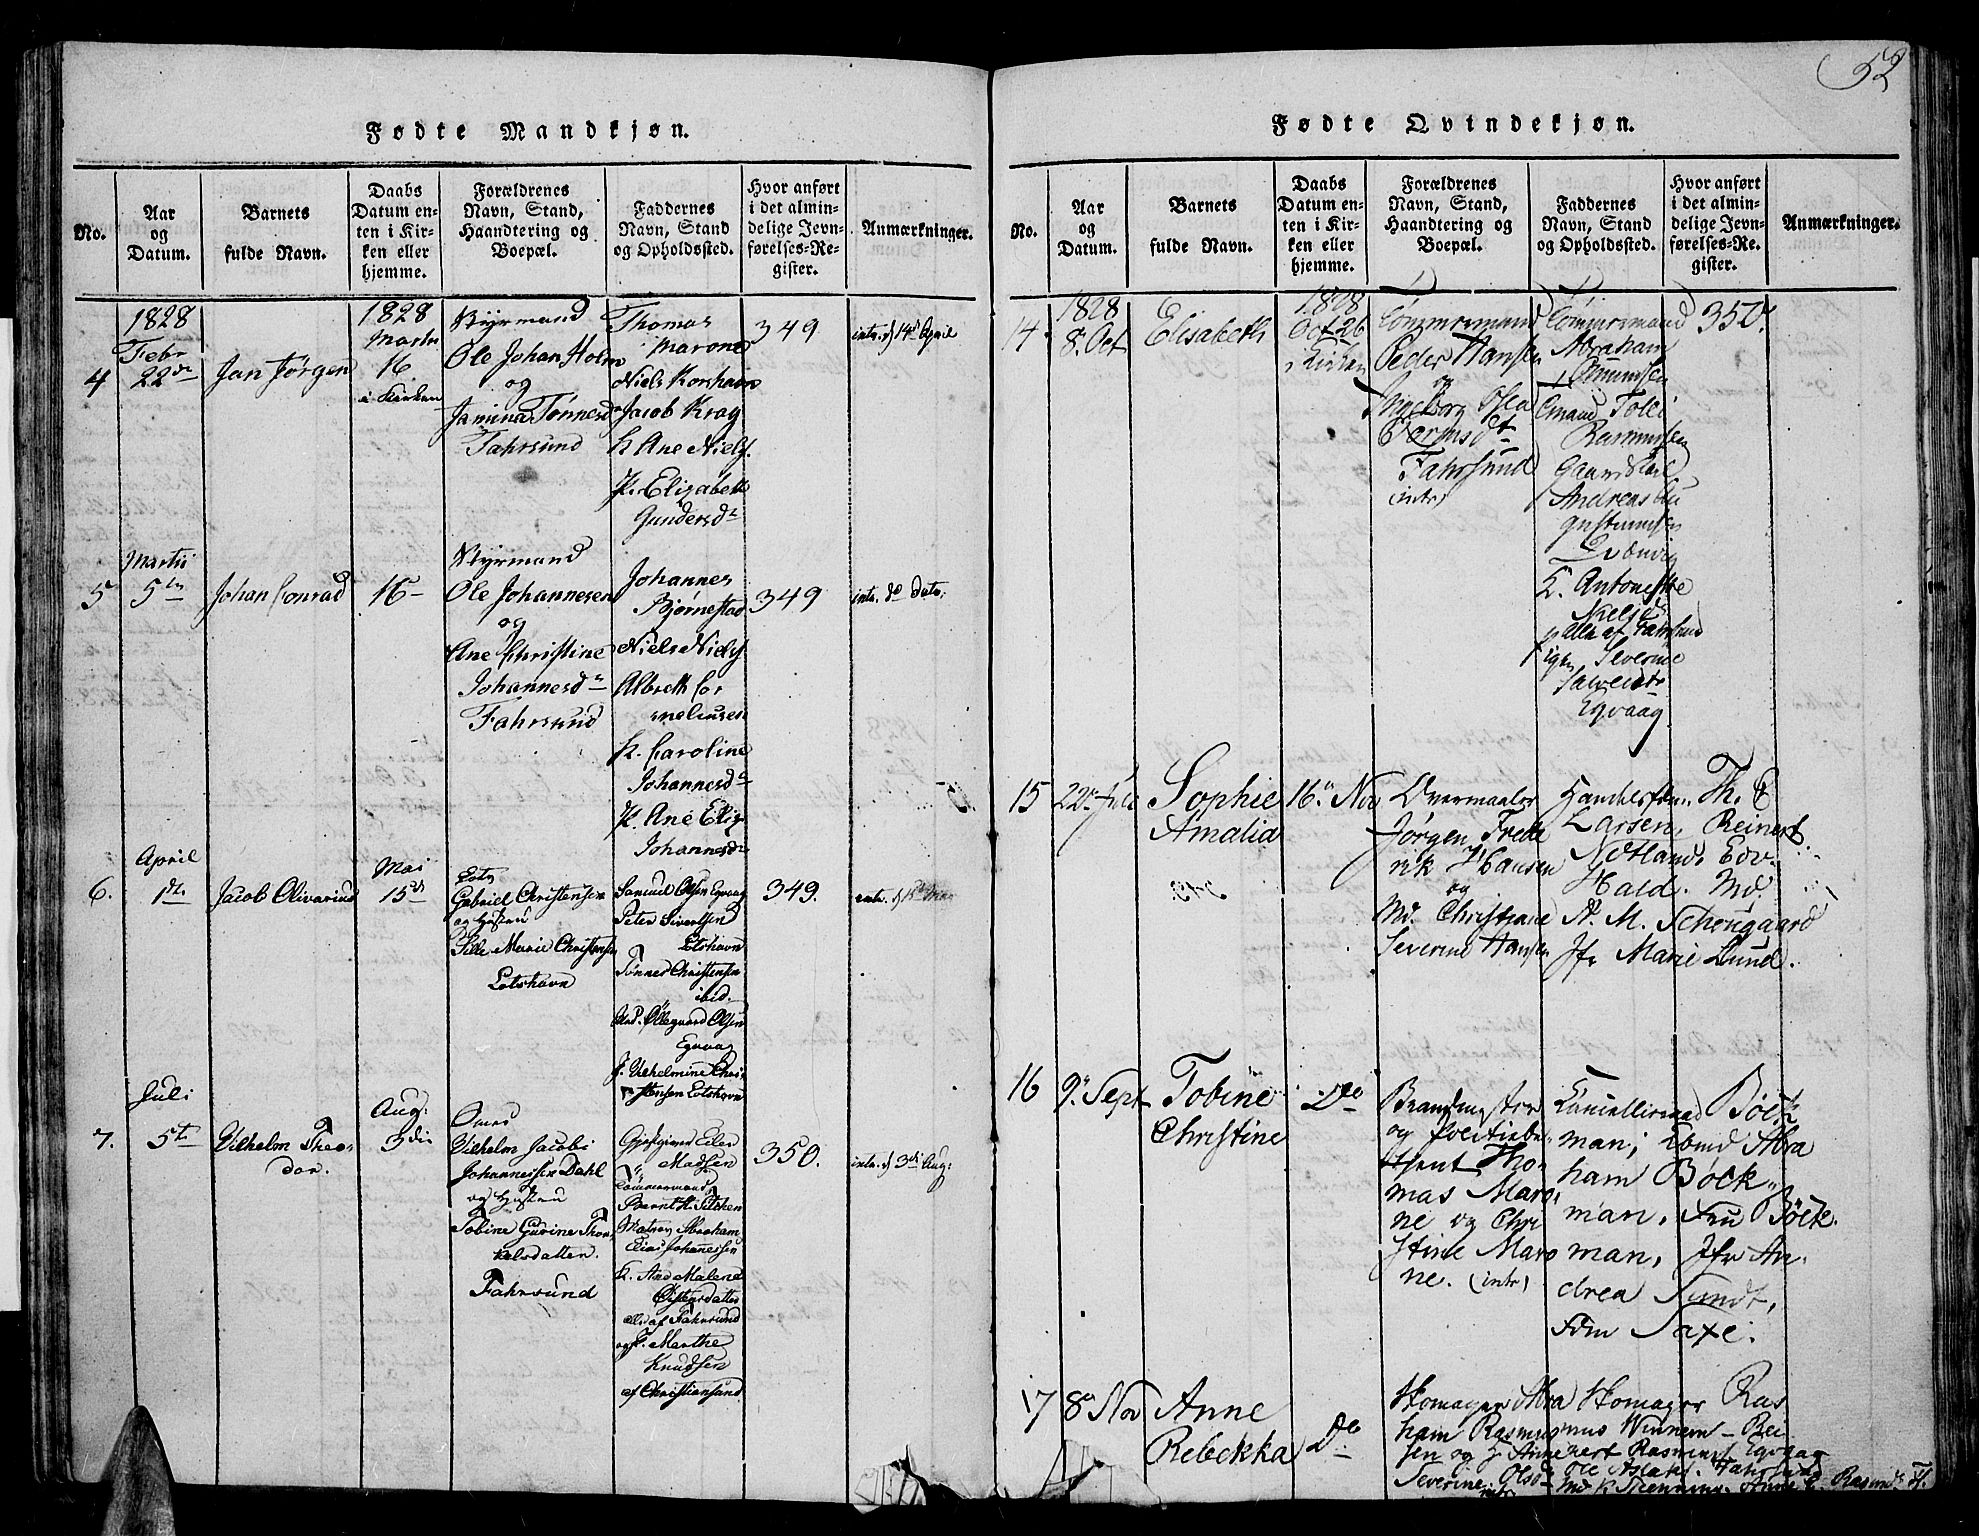 52
Fødte Mandkjøn.
No.
Aar
og
Datum.
Barnets
fulde Navn.
Daabs
Datum en-
ten i Kir-
ken eller
hjemme.
Forældrenes
Navn, Stand,
Haandtering og
Boepæl.
Faddernes
Navn, Stand
og Opholdssted.
Hvor anført
i det almin-
delige Jevn-
førelses-Re-
gister.
Anmærkninger.
4
1828
Febr
22de
Jan Jørgen
1828
Martii
16
i Kirken
Styrmand
Ole Johan Holm
og
Jamina Tønnesd
Fahrsund
Thomas
Marone
Niels Korshavn
Jacob Krag
K. Ane Niels.
P. Elizabeth
Gundersdr
349
intr. d 14d April
5
Martii
5te
Johan Conrad
16
Styrmand
Ole Johannesen
og
Ane Christine
Johannesdr
Fahrsund
Johannes
Bjørnestad
Niels Niels
Albreth Cor
neliusen
K. Caroline
Johannesdr
P. Ane Eliz
Johannesdr
349
intr. do dato.
6.
April
1st
Jacob Olivarius
Mai
15de
Lots
Gabriel Christensen
og Hustru
Sille Marie Christensen
Lotshavn
Samuel Olsen Egvaag
Peter Sivertsen
Lotshavn
Tønnes Christensen
ibid.
Mad. Øllegaard Olsen
Egvaag
J. Vilhelmine Chri-
stensen Lotshavn
349.
intr. d 15de Mai
7.
Juli
5te
Vilhelm Theo
dor.
Aug:
3die
Vilhelm Jacobi
Johannessen Dahl
og Hustru
Tobine Gurine Thor
kelsdatter.
Fahrsund
Gjestgiver Eiler
Madsen
Tømmermand
Bernt H. Silsken
Matros Abraham
Elias Johannessen
K. Ane Malene
Østensdatter
alle af Fahrsund
og J. Marthe
Knudsen
af Christiansand
350.
intr. d 3die Aug:
Fødte Qvindekjøn.
No.
Aar
og
Datum.
Barnets
fulde Navn.
Daabs
Datum en-
ten i Kir-
ken eller
hjemme.
Forældrenes
Navn, Stand,
Haandtering og
Boepæl.
Faddernes
Navn, Stand
og Opholdssted.
Hvor anført
i det almin-
delige Jevn-
førelses-Re-
gister.
Anmærkninger.
14
1828
8. Oct
Elisabeth
1828
Oct 26
i Kirken
Tømmermand
Peder Hansen
og
Ingeborg Olea
Fahrsund
(intr)
Tømmermand
Abraham
Tollef
Rasmussen
Andreas Au
gustinussen
K. Antonette
Nielsd
alle af Fahrsund
Pigen Severine
Egvaag
350.
15
22. Juli
Sophie
Amalia
16. Nov
Overmaaler
Jørgen Frede
rik Hansen
og
Md. Christiane
Severine Hansen
Handelsfm. Th. E
Larsen, Reinert
Nötland, Edv.
Hald. Md.
A. M. Schougaard
Jfr Marie Lund.
16
9. Sept
Tobine
Christine
Do
Brandmester
og Politiebe-
tjent Tho-
mas Maro-
ne og Chri
stine Maro
ne. (intr)
Cancelliraad Böck
man; Lbmd Abra
ham Böck-
man, Fru Böck-
man, Jfr An-
drea Sundt,
Fdm Saxe.
17
8 Nov
Anne
Rebekka
Do
Skomager Abra
ham Rasmus
sen og H Anne
Severine Olsd
intr.
Skomager Ras
mus Winnem - Rei
nert Rasmus Egvaag
Ole Aslaks. Fahrsund